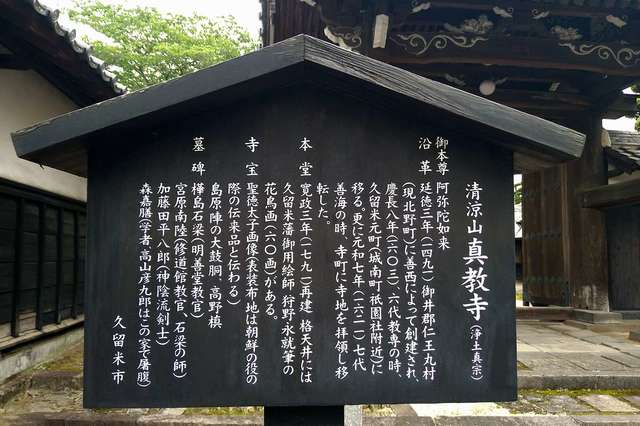 清涼山真教寺(浄土真宗)
御本尊 阿弥陀如来
沿革 延徳三年(一四九一)御井郡仁王丸村
(現北野町)に善西によって創建され、
慶長八年(一六〇三)、六代教専の時、
久留米元町(城南町祇園社附近)に
移る。更に元和七年(一六二一)七代
善海の時、寺町に寺地を拝領し移
転した。
本堂 寛政三年(一七九一)再建 格天井には
久留米藩御用絵師 狩野永就筆の
花鳥画(六〇画)がある。
寺宝 聖徳太子画像(表装布地は朝鮮の役の
際の伝来品と伝わる)
島原陣の大鼓胴、高野槙
墓碑 樺島石梁(明善堂教官)
宮原南陸(修道館教官、石梁の師)
加藤田平八郎(神陰流剣士)
森嘉膳(学者 高山彦九郎はこの家で屠腹)
久留米市